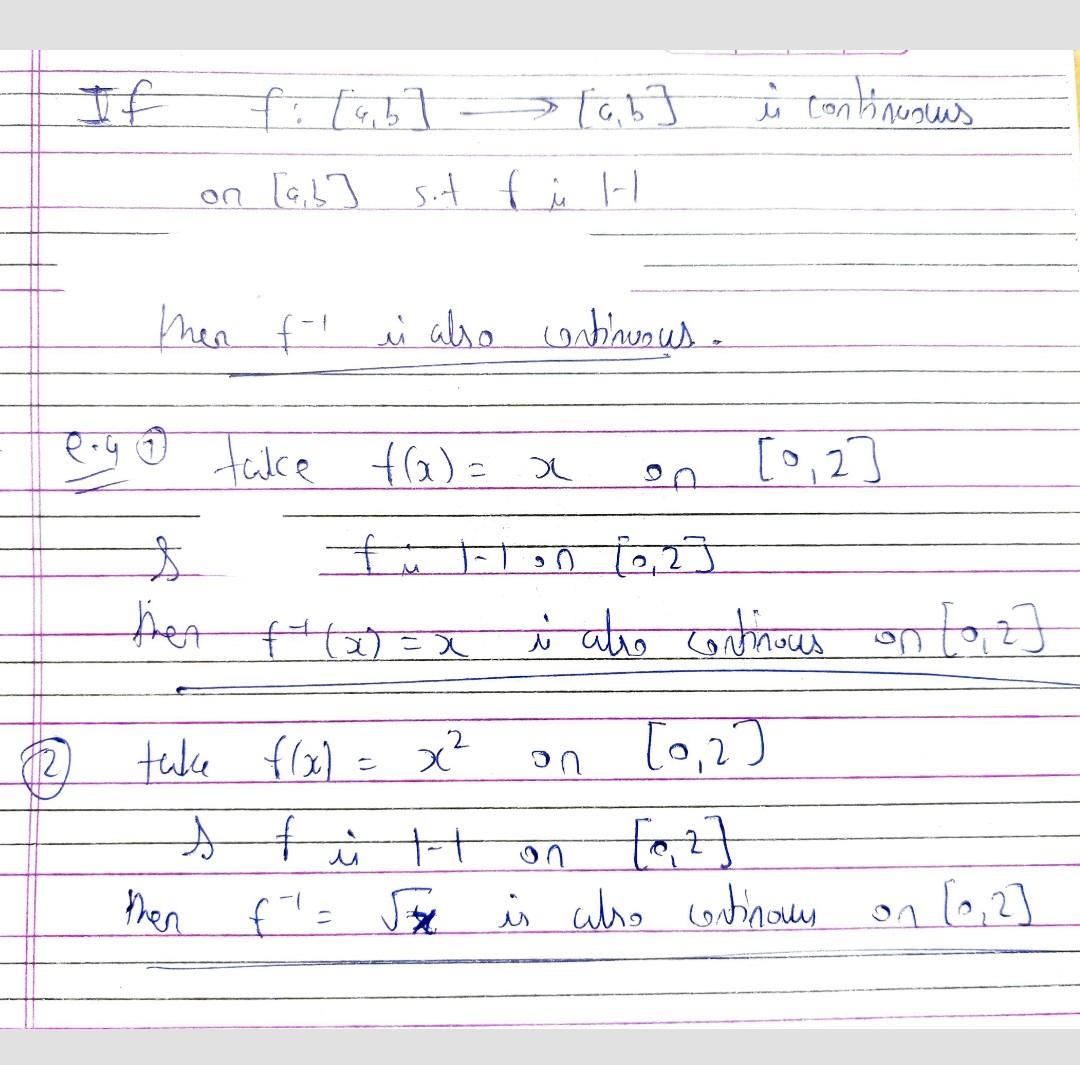 If f: [a,b] → [a,b] is continuous
on [a,b] s.t f is 1-1
then f⁻¹ is also continuous.
e.g ① take f(x) = x on [0,2]
& f is 1-1 on [0,2]
then f⁻¹(x) = x is also continous on [0,2]
② take f(x) = x² on [0,2]
& f is 1-1 on [0,2]
then f⁻¹ = √x is also continous on [0,2]